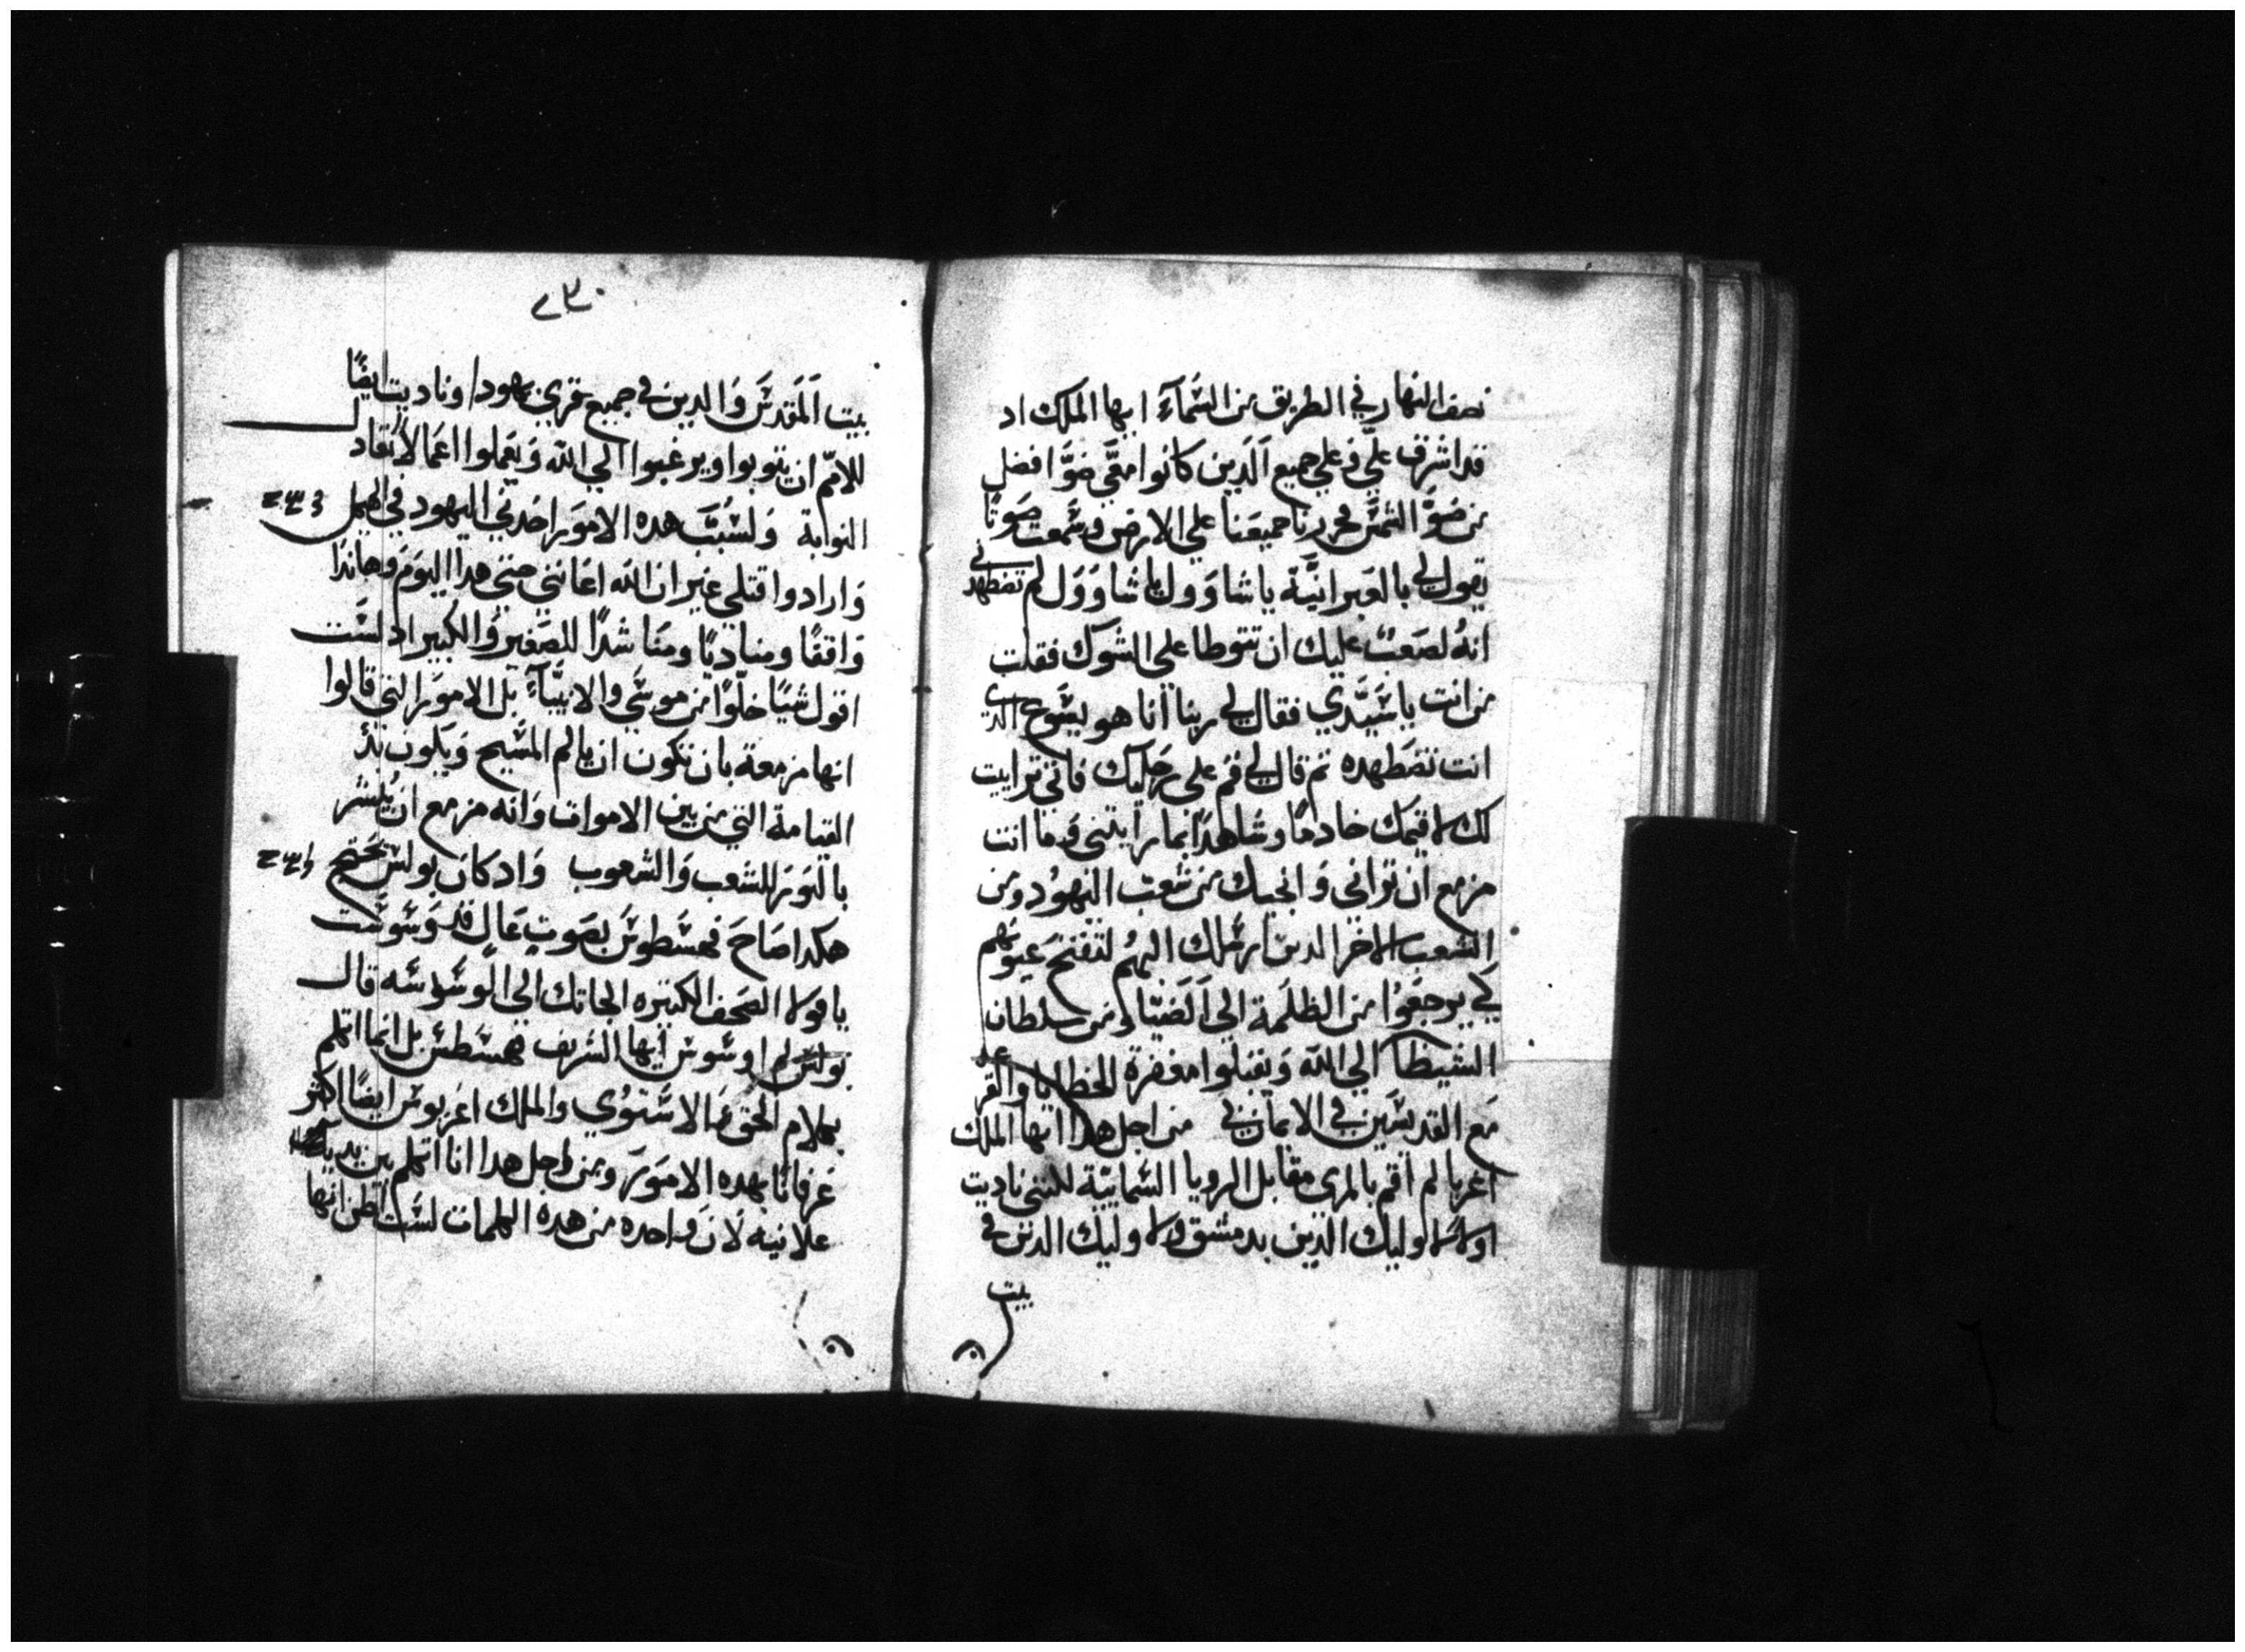 نصف النهار في الطريق من السَّمَآءِ ايها الملك اد
قد اشرق عليّ وعلي جميع الَدين كانوا معَي ضوَّا افضل
من ضوَّ الشمسَ فخررنا جميعَنا علي الارض وسَمعت صَوتًا
يقول لي بالعَبرانيَّة ياشاوَول ياشاوَوَل لم تضطهدني
انهُ لصَعبٌ عليك ان تتوطا علي الشوك فقلت
من انت ياسَيّدَي فقال لي ربنا انا هو يسَوع الدي
انت تضَطهده تم قال لي قم علي رجَليك فاني ترايت
لك لاقيمك خادمًا وشاهدًا بما رايتني وَما انت
مزمع ان تراني وَانجيك من شعبَ اليَهوُد ومن
الشعوب الاخر الدين ارسَلك اليهُم لتفتح عيونهم
كي يرجعَوُا من الظلَمة الي الَضيَا ومن سلطان
الشيطان الي الله وَيقبَلوا مغفرة للخطايا والقرعه
مَع القديسَين في الايمان بي من اجل هدا ايها الملك
اغربا لم اقم بالمري مقابل الرويا السَمايية للنني ناديت
اولاً لاوليك الدين بدمشق ولاوليك الدين في
بيت
٢٣٠
بيت اَلمَقدسَ وَالدين في جميع قري يهودا وناديت ايضًا
للامَم ان يتوبوا ويرغبوا الي الله وَيعَملوا اعَمالاً تعَاد
التوابة وَلسُبَبَ هده الامورَ اخدني اليهود في الهيكل
وَارادوا قتلي غير ان الله اعَانني حتي هدا اليوَم وَهاندا
وَاقفًا ومناديًا ومنَاشدًا للصَغير وَالكبير اد لسَت
اقول شيًا خلوًا من موسَي والانبيَآءِ بَل الامورَ التي قالوا
انها مزمعة بان تكون ان يالم المسَيح وَيكون بَدَ
القيامة التي من بين الاموات وَانه مزمع ان يُبشر
بالنورَ للشعب وَالشعوب وَادكان بولسَ يحَتج
هكدا صَاحَ فهسَطوسَ بصَوتٍ عَالٍ قد وَسَوسَت
يابولا الصَحف الكتيره الجاتك الي الوسَوسَه قال
بولسَ لم اوسَوس ايها الشريف فهسَطسَ بل انما اتكلم
بكلام الحق وَالاسَتوُي والملك اغربوسَ ايضًا اكتر
عَرفانًا بهده الامورَ ومن اجل هدا انا اتكلم بين يديه
علانيه لانَ وَاحده من هدة الكلمات لسَت اظن انها